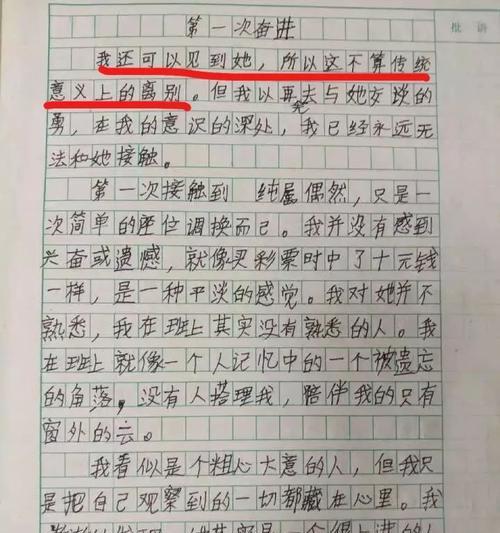 第一次奋进
批语
我还可以见到她，所以这不算传统
意义上的离别。但我以再去与她交谈的
勇，在我的意识的深处，我已经永远无
法和她接触。
第一次接触到 纯属偶然，只是一
次简单的座位调换而已。我并没有感到
兴奋或遗憾，就像买彩票时中了十元钱
一样，是一种平淡的感觉。我对她并不
熟悉，我在班上其实没有熟悉的人。我
在班上就像一个人记忆中的一个被遗忘
的角落，没有人搭理我，陪伴我的只有
窗外的云。
我看似是个粗心大意的人，但我只
是把自己观察到的一切都藏在心里。我
是一个很上进的人